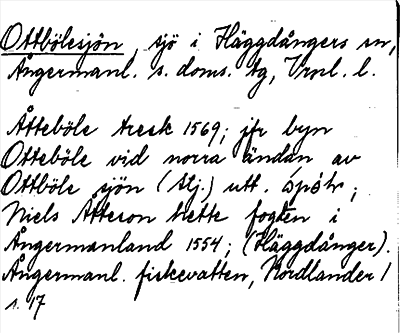 Ottbölesjön, sjö i Häggdångers sn,
Ångermanl. s. doms. tg, Vrnl. l.
Åtteböle tresk 1569; jfr byn
Otteböle vid norra ändan av
Ottböle sjön (Stj.) utt.
Niels Åtteson hette fogten i
Ångermanland 1554; (Häggdånger).
Ångermanl. fiskevatten, Nordlander 1
s. 17